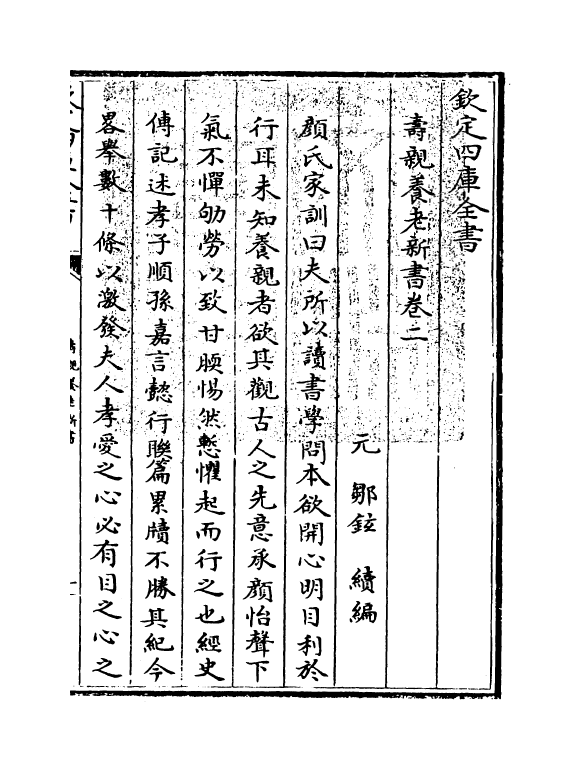 欽定四庫全書
壽親養老新書卷二
元 鄒鉉 續編
顔氏家訓曰夫所以讀書學問本欲開心明目利於
行耳未知養親者欲其觀古人之先意承顔怡聲下
氣不憚劬勞以致甘腝惕然慙懼起而行之也經史
傳記述孝子順孫嘉言懿行聮篇累牘不勝其紀今
畧舉數十條以激發夫人孝愛之心必有目之心之